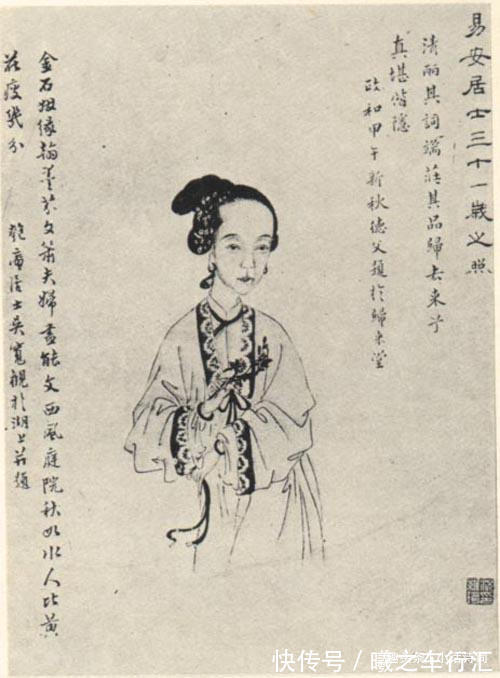 易安居士三十一歲之照
清丽其詞端莊其品歸去來兮
真堪偕隱
政和甲午新秋德父題於歸來堂
金石姻緣翰墨芬文簫夫婦盡能文西風庭院秋如水人比黃
花瘦幾分
匏庵居士吳寬觀於湖上并題
快传号／曦之车行汇